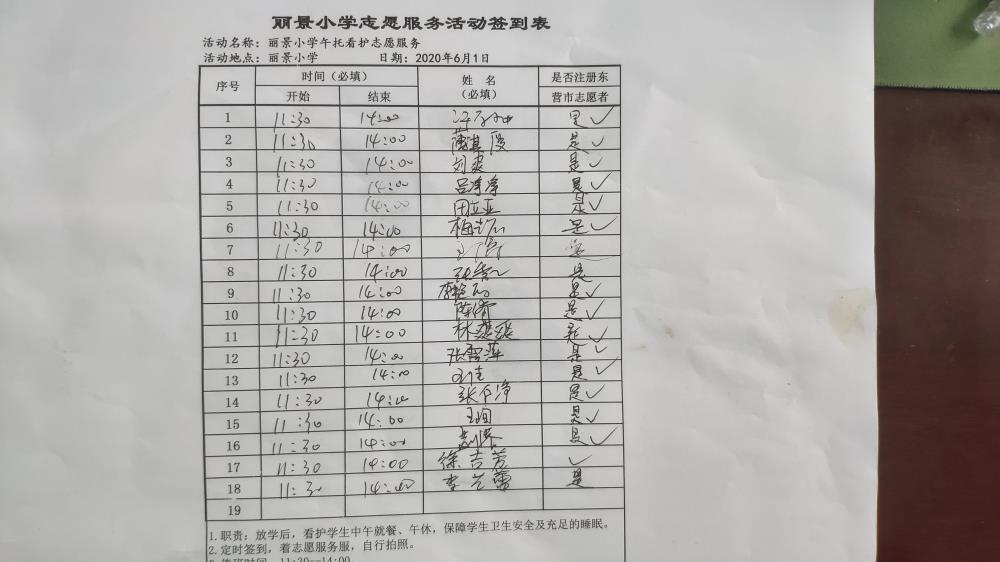 丽景小学志愿服务活动签到表
活动名称：丽景小学午托看护志愿服务
活动地点：丽景小学 日期：2020年6月1日
序号 时间（必填） 姓 名 是否注册东
开始 结束 （必填） 营市志愿者
1 11:30 14:00 是✓
2 11:30 14:00 是✓
3 11:30 14:00 刘爽 是✓
4 11:30 14:00 吕净净 是✓
5 11:30 14:00 田立亚 是✓
6 11:30 14:00 是✓
7 11:30 14:00 是
8 11:30 14:00 是
9 11:30 14:00 是✓
10 11:30 14:00 是✓
11 11:30 14:00 林媛媛 是✓
12 11:30 14:00 张雪萍 是✓
13 11:30 14:00 王佳 是✓
14 11:30 14:00 是✓
15 11:30 14:00 是✓
16 11:30 14:00 是✓
17 11:30 14:00 徐吉芳 ✓
18 11:30 14:00 李兰蕾 是
19
1.职责：放学后，看护学生中午就餐、午休，保障学生卫生安全及充足的睡眠。
2.定时签到，着志愿服务服，自行拍照。